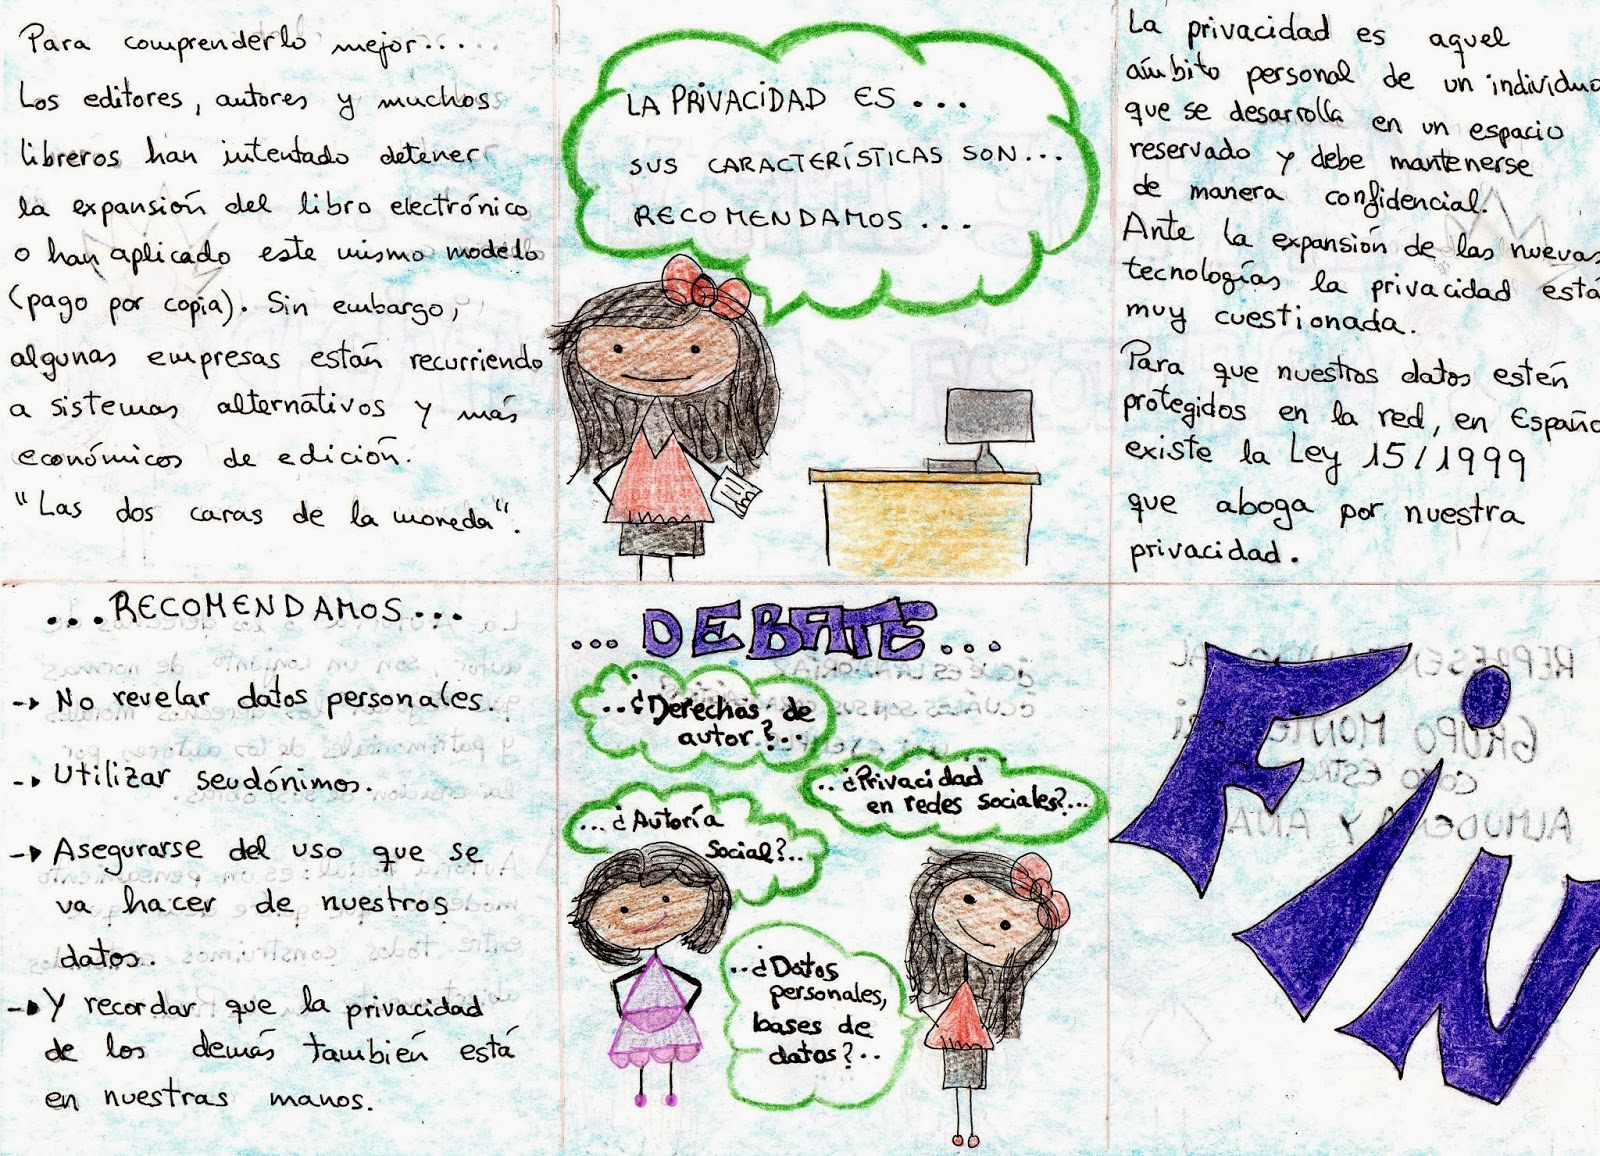 Para comprenderlo mejor.....
Los editores, autores y muchos
libreros han intentado detener
la expansión del libro electrónico
o han aplicado este mismo modelo
(pago por copia). Sin embargo,
algunas empresas están recurriendo
a sistemas alternativos y más
económicos de edición.
"Las dos caras de la moneda".
LA PRIVACIDAD ES...
SUS CARACTERÍSTICAS SON...
RECOMENDAMOS...
La privacidad es aquel
ámbito personal de un individuo
que se desarrolla en un espacio
reservado y debe mantenerse
de manera confidencial.
Ante la expansión de las nuevas
tecnologías la privacidad está
muy cuestionada.
Para que nuestros datos estén
protegidos en la red, en España
existe la Ley 15/1999
que aboga por nuestra
privacidad.
...RECOMENDAMOS...
→ No revelar datos personales.
→ Utilizar seudónimos.
→ Asegurarse del uso que se
va hacer de nuestros
datos.
→ Y recordar que la privacidad
de los demás también está
en nuestras manos.
...DEBATE...
..¿Derechos de
autor?...
..¿Privacidad
en redes sociales?...
...¿Autoría
social?..
..¿Datos
personales,
bases de
datos?..
FiN
REPRESEN
GRUPO MONTE
COMO ESTR
ALMUDENA Y ANA